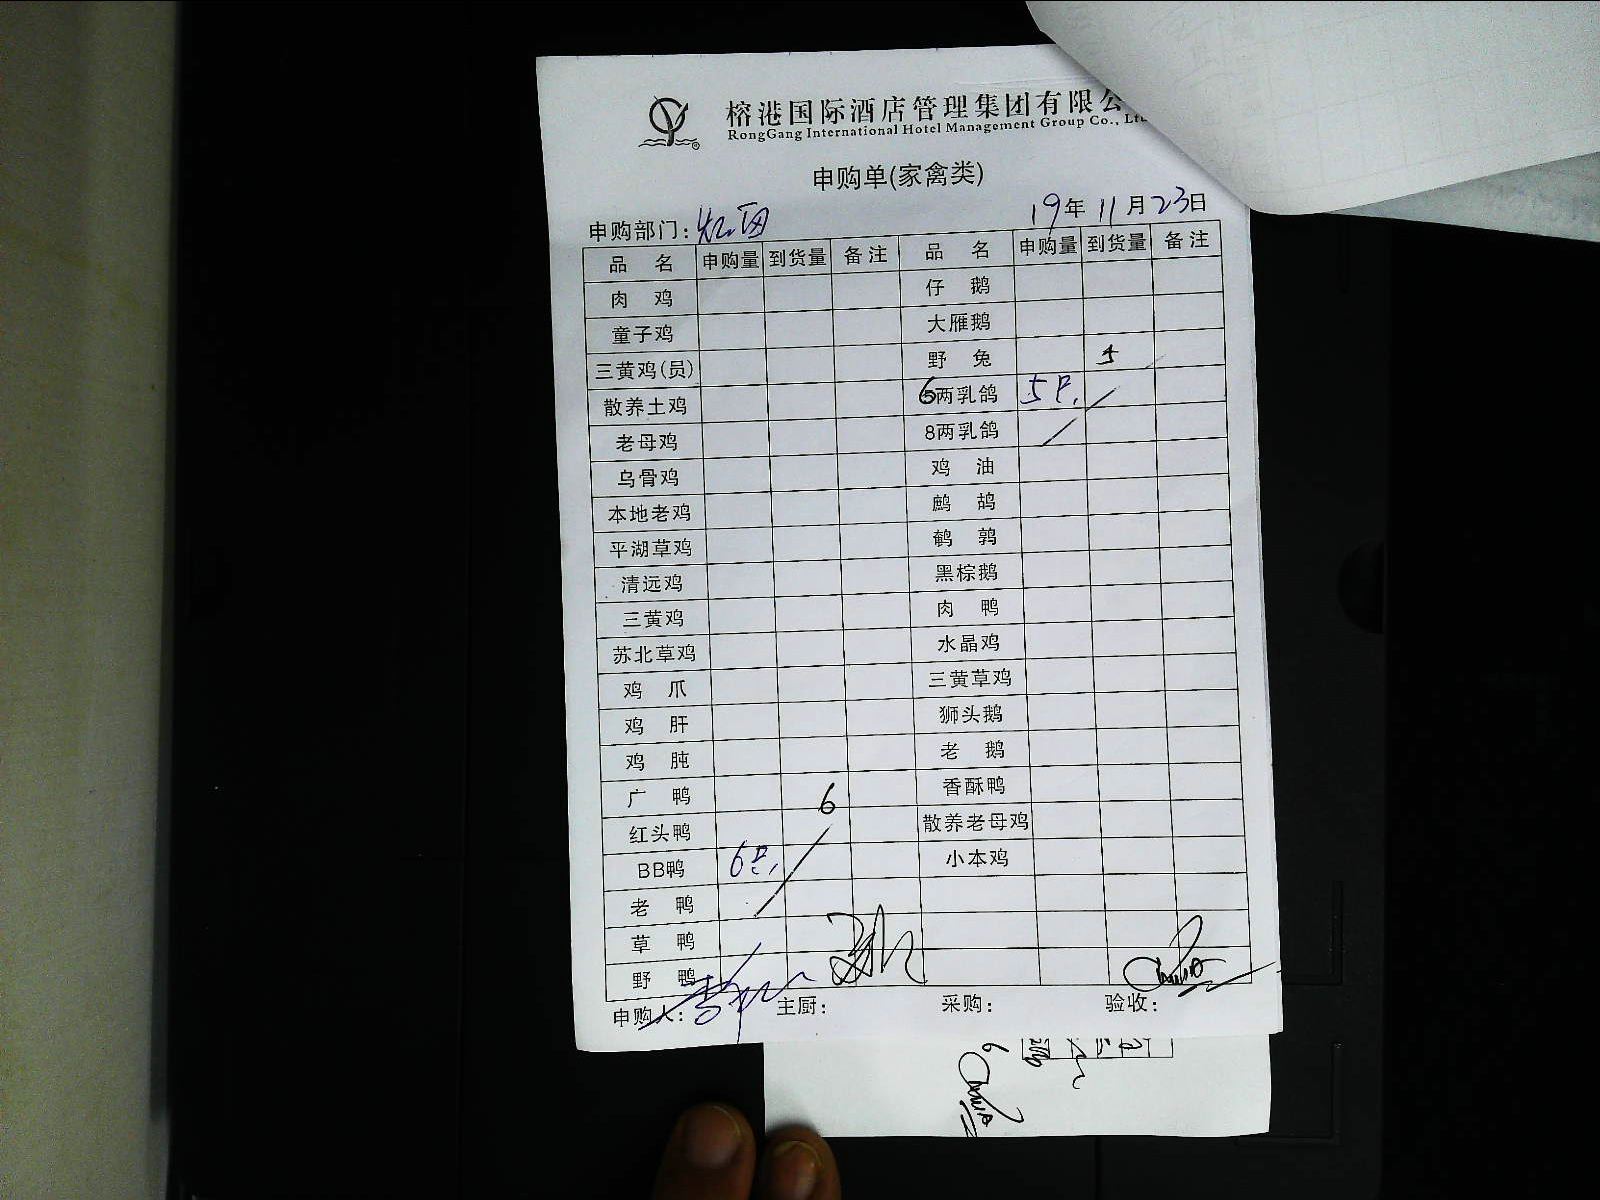 榕港国际酒店管理集团有限公
RongGang International Hotel Management Group Co., Ltd
申购单(家禽类)
申购部门: 19年11月23日
品 名 申购量 到货量 备注 品 名 申购量 到货量 备注
肉 鸡 仔 鹅
童子鸡 大雁鹅
三黄鸡(员) 野 兔 5
散养土鸡 6两乳鸽 5只.
老母鸡 8两乳鸽
乌骨鸡 鸡 油
本地老鸡 鹧 鸪
平湖草鸡 鹌 鹑
清远鸡 黑棕鹅
三黄鸡 肉 鸭
苏北草鸡 水晶鸡
鸡 爪 三黄草鸡
鸡 肝 狮头鹅
鸡 肫 老 鹅
广 鸭 6 香酥鸭
红头鸭 散养老母鸡
BB鸭 6只. 小本鸡
老 鸭
草 鸭
野 鸭
申购人: 主厨: 采购: 验收:
6